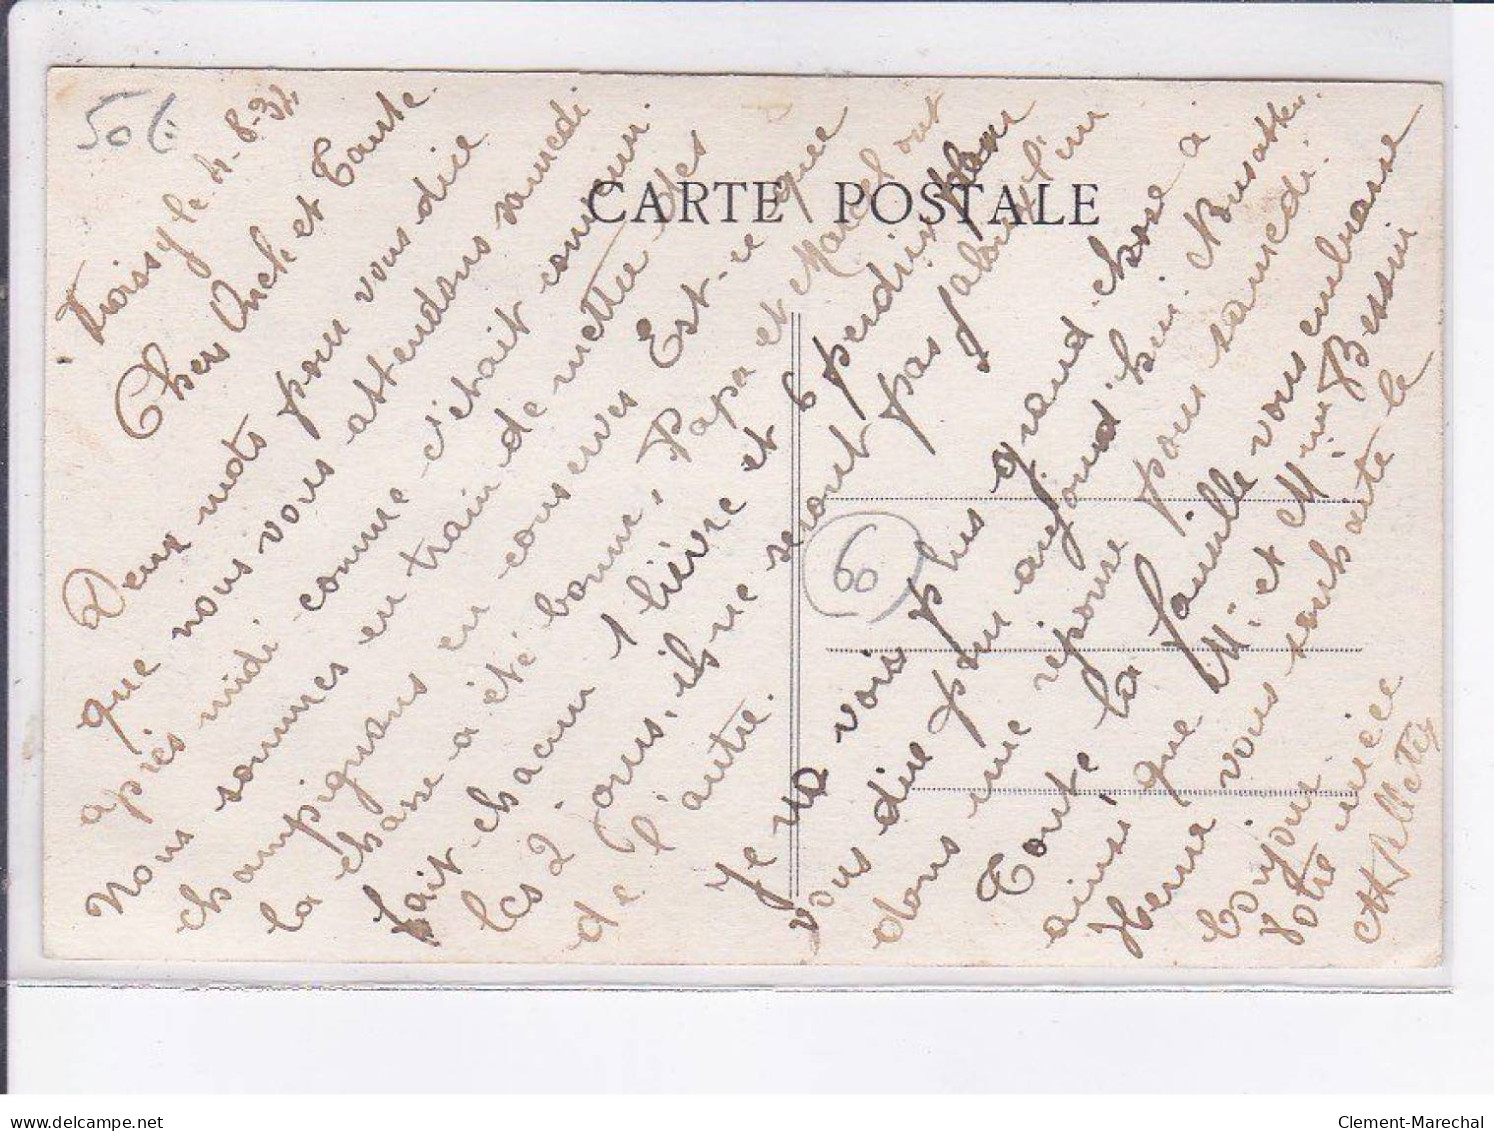 50f
CARTE POSTALE
60
Froissy le 4-8-34
Chers Oncle et Tante.
Deux mots pour vous dire
que nous vous attendons samedi
après midi comme c'était convenu.
Nous sommes en train de mettre des
champignons en conserves Est-ce que
la chasse a été bonne, Papa et Marcel ont
fait chacun 1 lièvre et 6 perdrix
les 2 jours, ils ne seront pas jaloux l'un
de l'autre.
Je ne vois plus grand chose à
vous dire pour aujourd'hui.
dans une reponse pour samedi.
Toute la famille vous embrasse
ainsi que M. et Mme Bessin
Herne vous souhaite le
bonjour.
Votre nièce
delcampe.net
Clement-Marechal